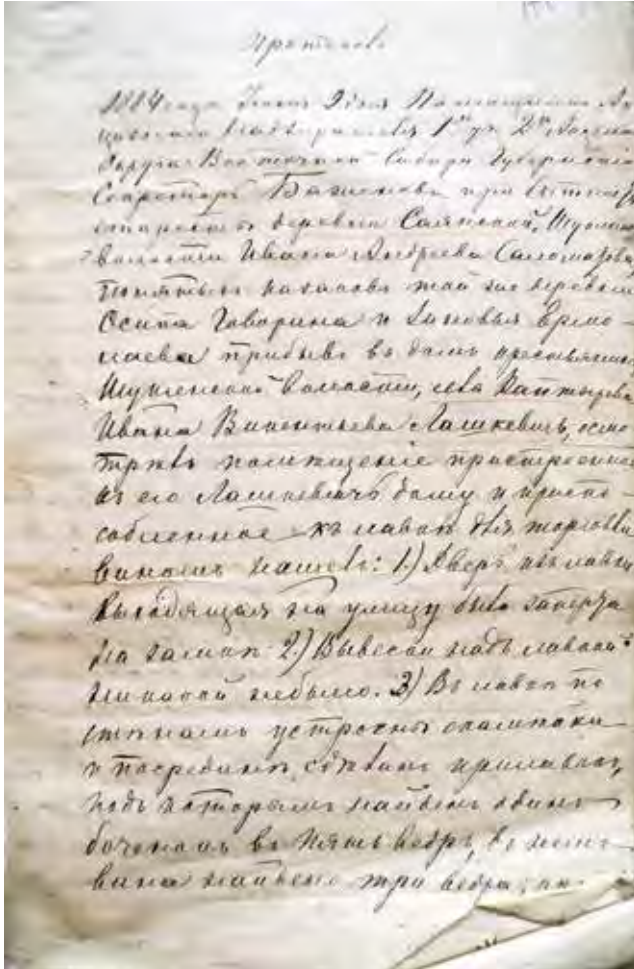 Протоколъ
1884 года Июня 9 дня Помощникъ Ак
цизнаго Надзирателя 1го уч. 2го Акцизн
Округа Восточной Сибири Губернскій
Секретарь Баженовъ при бытности
старосты деревни Саянской, Шелое
волости Ивана Андреева Саломатова
понятыхъ казаковъ той же деревни
Осипа Говорина и Зиновья Ермо-
лаева прибывъ въ домъ крестьянина
волости,
Ивана Викентьева Лашкевичъ, осмо
трѣвъ помѣщеніе пристроенное
къ его Лашкевича дому и приспо-
собленное къ лавкѣ для торговли
виномъ нашелъ: 1.) Дверь изъ лавки
выходящая на улицу была заперта
на замокъ 2.) Вывески надъ лавкой
никакой небыло. 3) Въ лавкѣ по
стѣнамъ устроены скамейки
и посрединѣ сдѣланъ прилавокъ,
подъ которымъ найденъ одинъ
боченокъ въ пять ведръ, въ немъ
вина найдено три ведра,